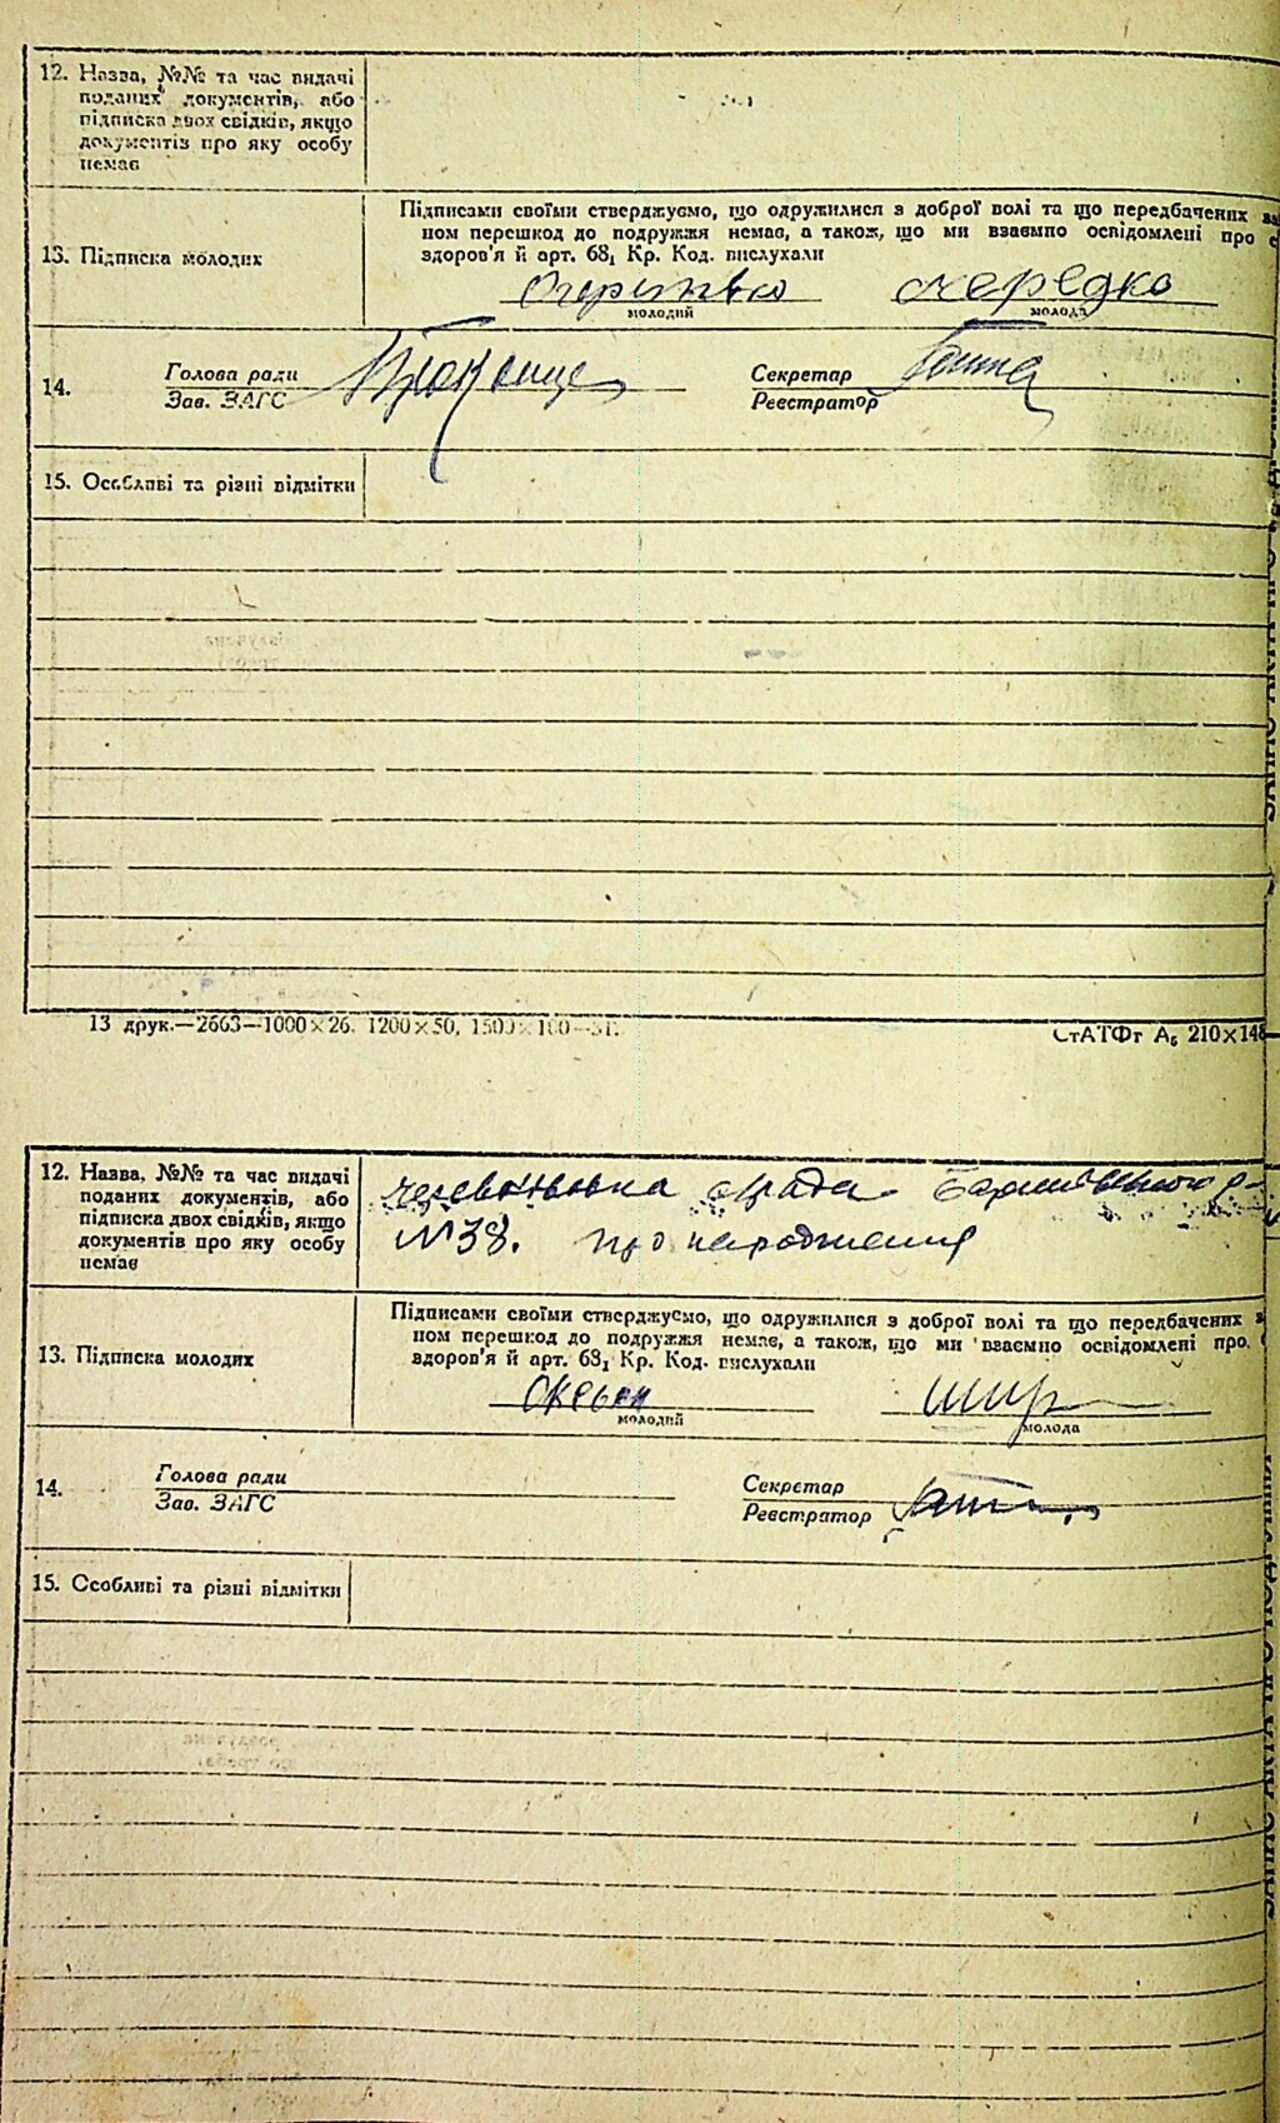 12. Назва, №№ та час видачі
поданих документів, або
підписка двох свідків, якщо
документів про яку особу
немає
13. Підписка молодих
Підписами своїми стверджуємо, що одружилися з доброї волі та що передбачених
ном перешкод до подружжя немає, а також, що ми взаємно освідомлені про
здоров'я й арт. 68₁ Кр. Код. вислухали
Чередко
молодий молода
14. Голова ради
Зав. ЗАГС
Секретар
Реєстратор
15. Особливі та різні відмітки
13 друк.—2663—1000×26. 1200×50, 1500×100—31.
СтАТФг А₅ 210×148
12. Назва, №№ та час видачі
поданих документів, або
підписка двох свідків, якщо
документів про яку особу
немає
с/рада
№38. про народження
13. Підписка молодих
Підписами своїми стверджуємо, що одружилися з доброї волі та що передбачених
ном перешкод до подружжя немає, а також, що ми взаємно освідомлені про
здоров'я й арт. 68₁ Кр. Код. вислухали
молодий молода
14. Голова ради
Зав. ЗАГС
Секретар
Реєстратор
15. Особливі та різні відмітки